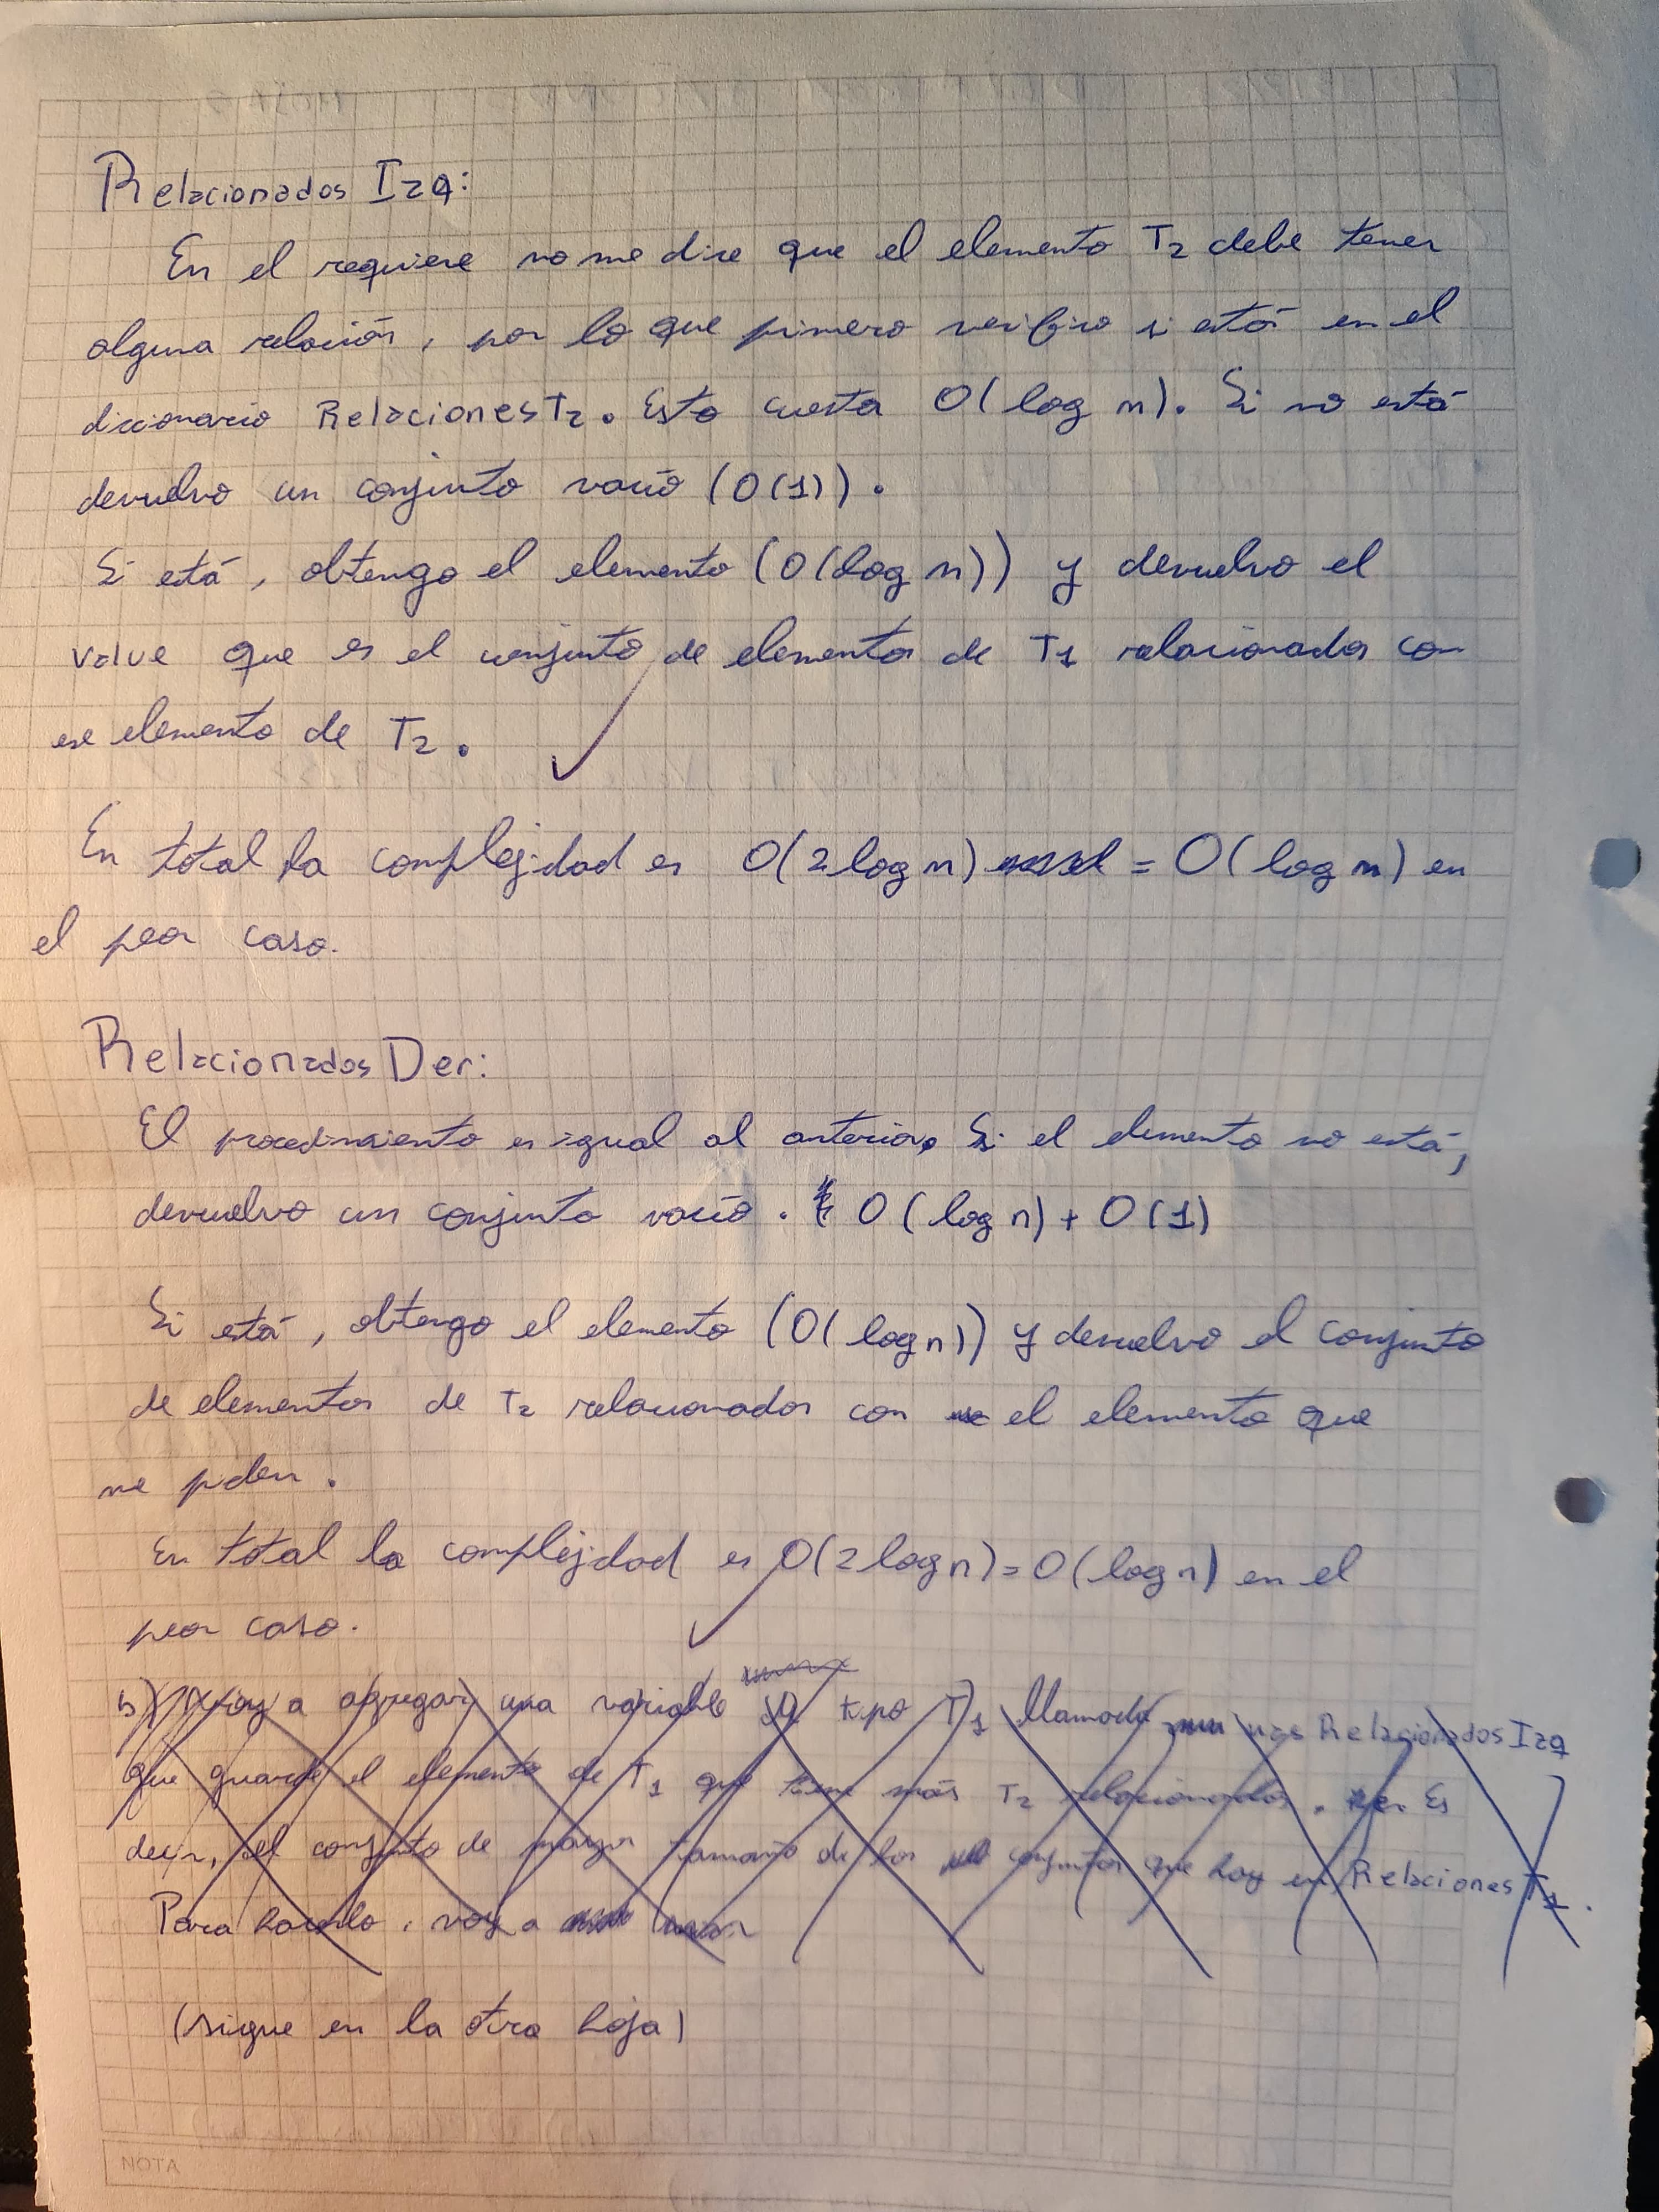 Relacionados Izq:
En el requiere no me dice que el elemento T2 debe tener
alguna relación, por lo que primero verifico si está en el
diccionario RelacionesT2. Esto cuesta O(log n). Si no está
devuelvo un conjunto vacío (O(1)).
Si está, obtengo el elemento (O(log n)) y devuelvo el
value que es el conjunto de elementos de T1 relacionados con
ese elemento de T2.
En total la complejidad es O(2 log n) = O(log n) en
el peor caso.
Relacionados Der:
El procedimiento es igual al anterior. Si el elemento no está,
devuelvo un conjunto vacío. O(log n) + O(1)
Si está, obtengo el elemento (O(log n)) y devuelvo el conjunto
de elementos de T2 relacionados con el elemento que
me piden.
En total la complejidad es O(2 log n) = O(log n) en el
peor caso.
b) Voy a agregar una variable tipo T1 llamada mas Relacionados Izq
que guarde el elemento de T1 que tiene más T2 relacionados. Es
decir, el conjunto de mayor tamaño de los conjuntos que hay en Relaciones T1.
Para hacerlo, voy a
(sigue en la otra hoja)
NOTA